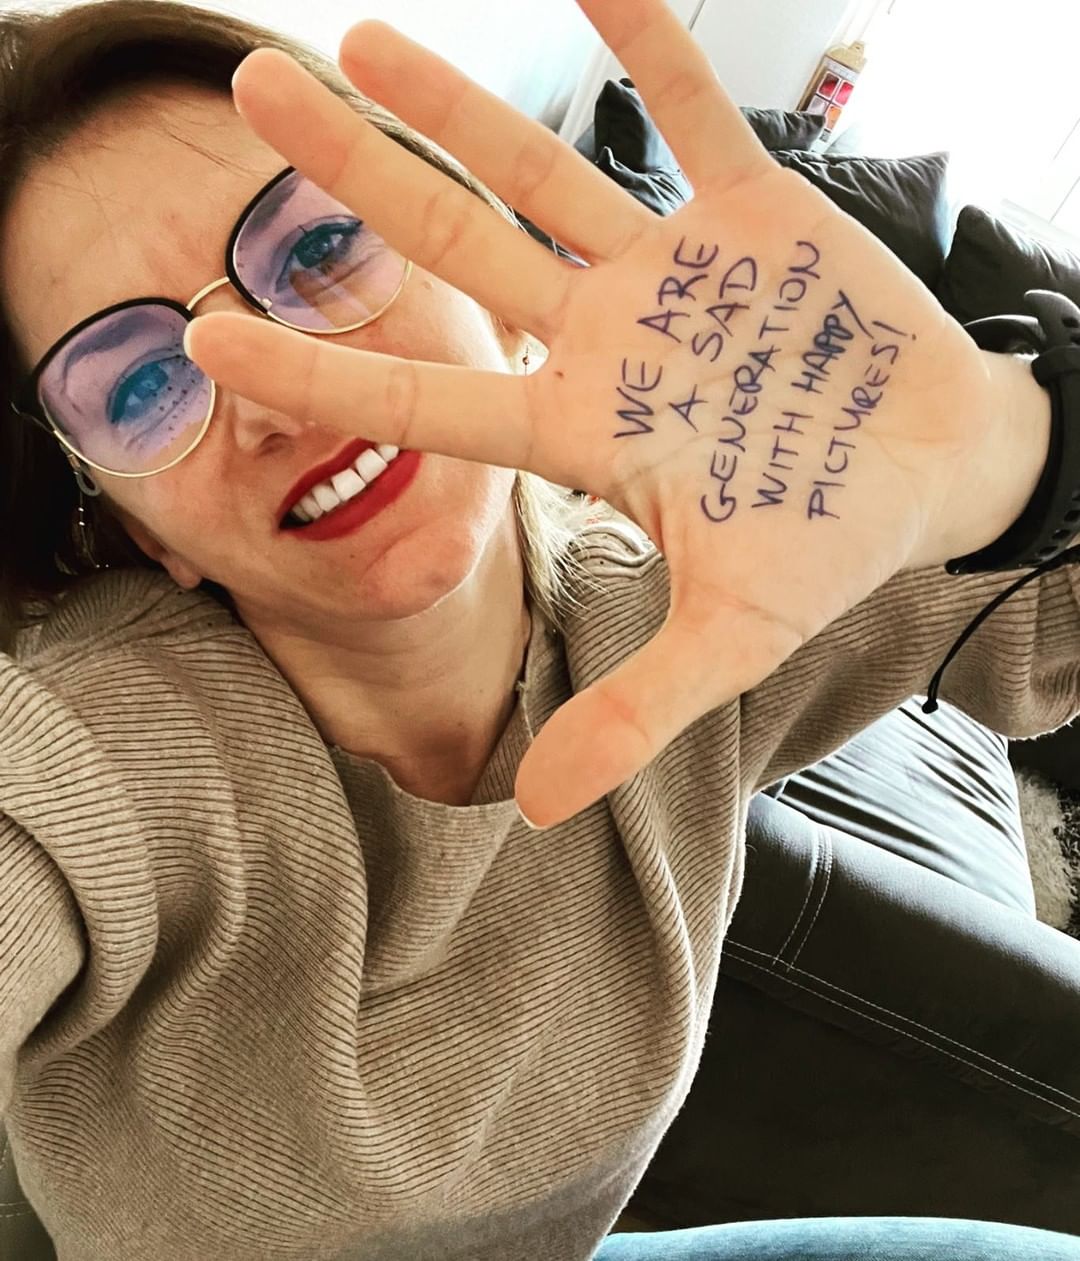 WE ARE
A SAD
GENERATION
WITH HAPPY
PICTURES!